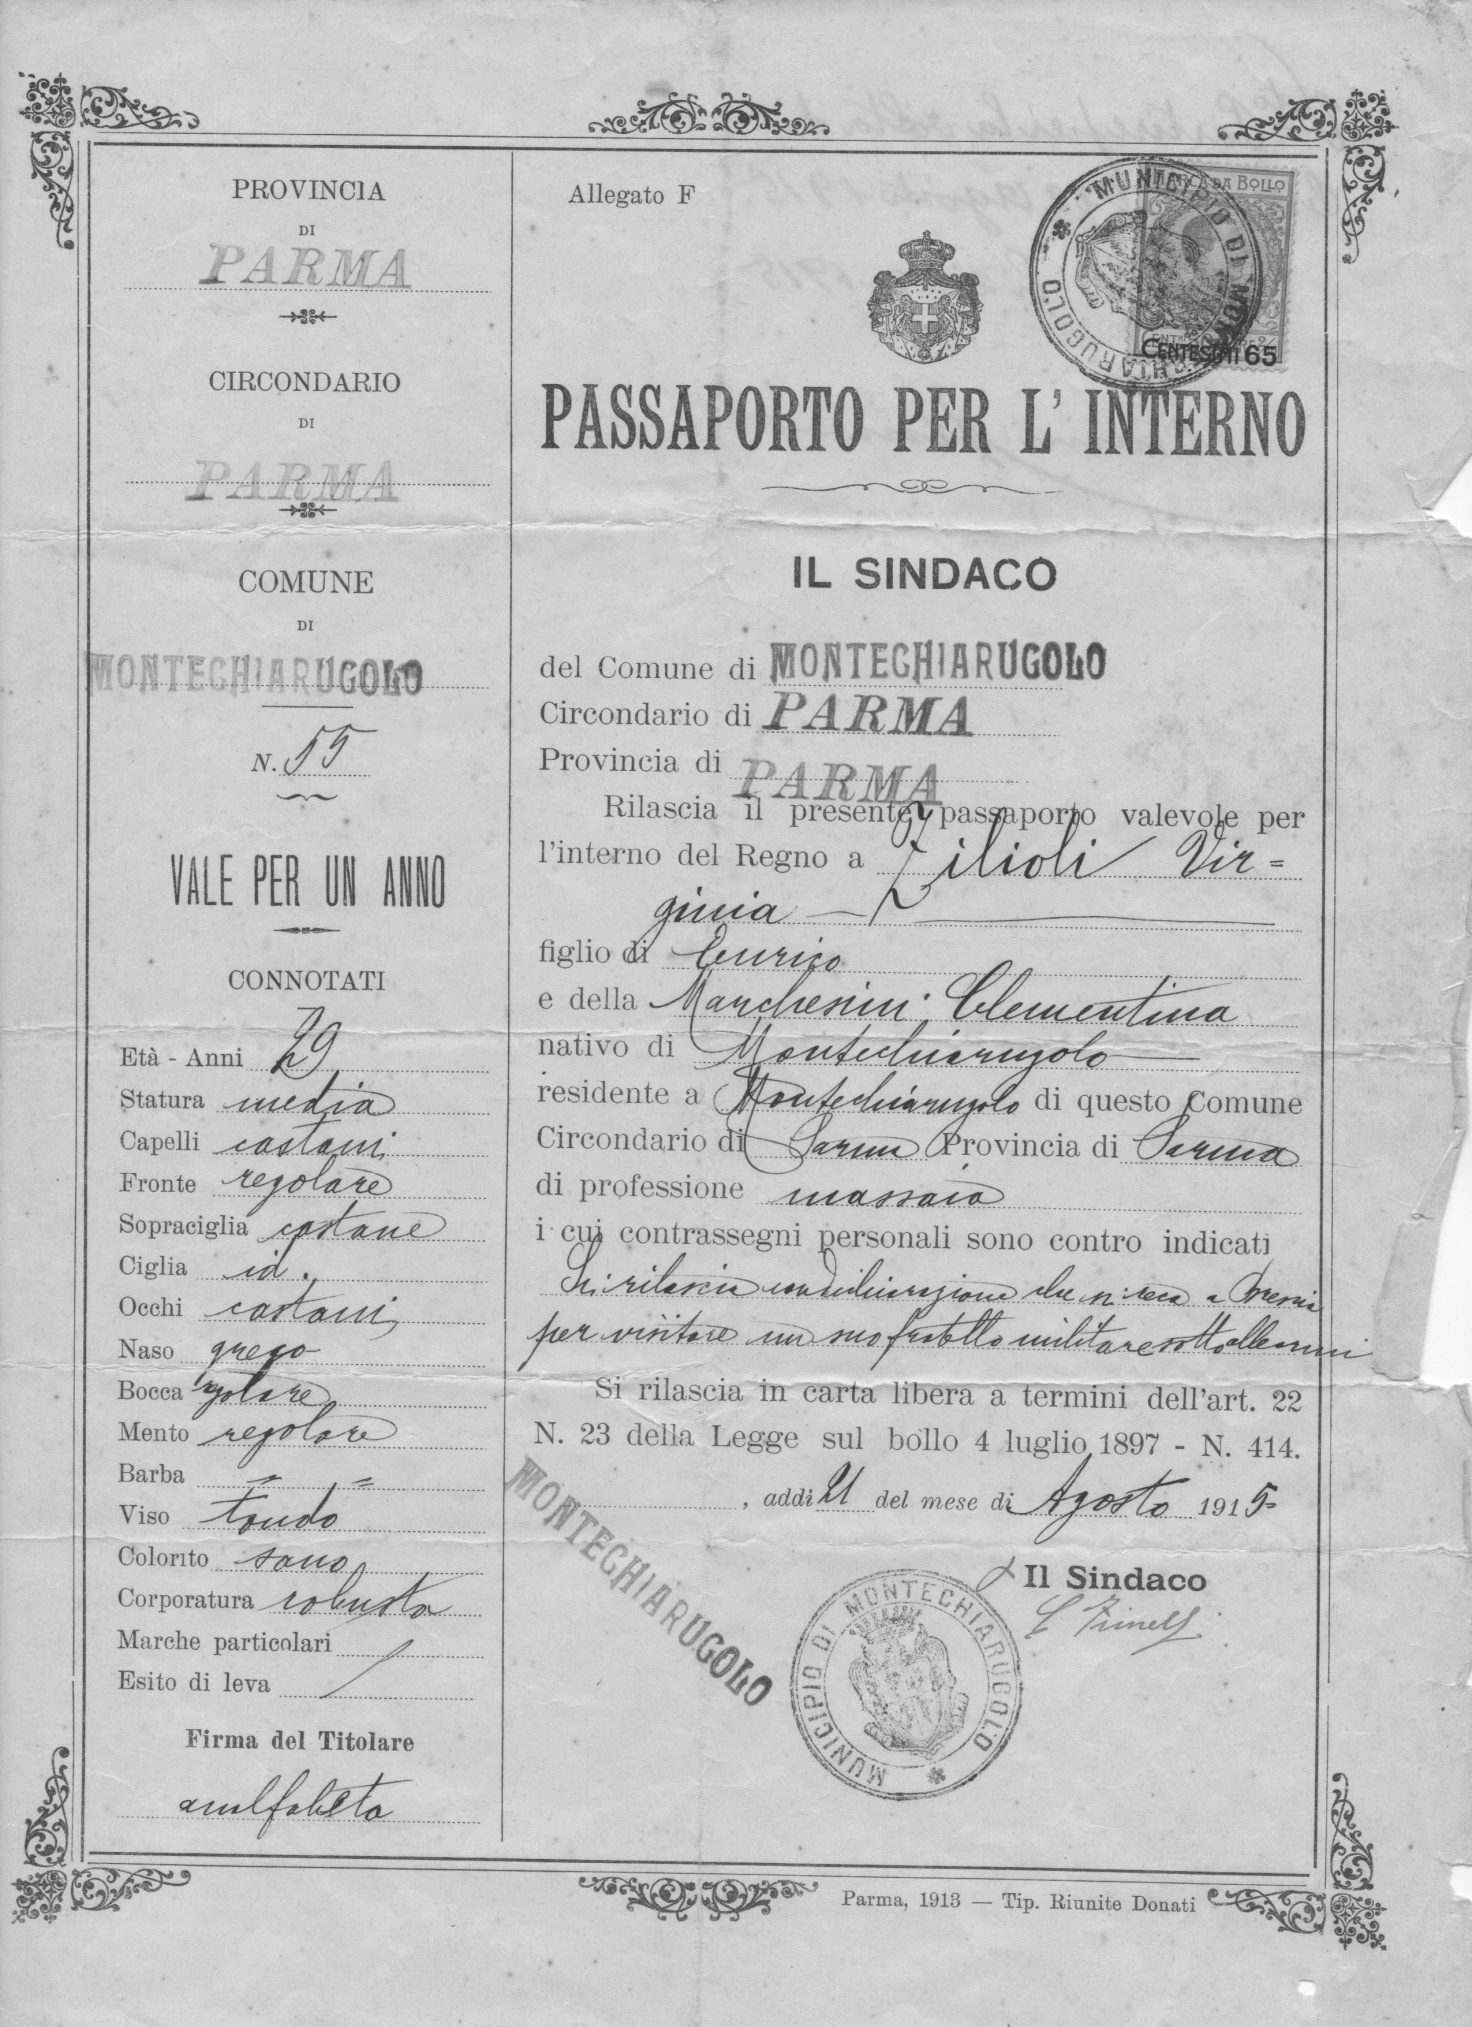 PROVINCIA
DI
PARMA
CIRCONDARIO
DI
PARMA
COMUNE
DI
MONTECHIARUGOLO
N. 55
VALE PER UN ANNO
CONNOTATI
Età - Anni 29
Statura media
Capelli castani
Fronte regolare
Sopraciglia castane
Ciglia id.
Occhi castani
Naso greco
Bocca rgolare
Mento regolare
Barba " "
Viso tondo
Colorito sano
Corporatura robusta
Marche particolari
Esito di leva
Firma del Titolare
analfabeta
Allegato F
MARCA DA BOLLO
MUNICIPIO DI MONTECHIARUGOLO
CENTESIMI 65
PASSAPORTO PER L' INTERNO
IL SINDACO
del Comune di MONTECHIARUGOLO
Circondario di PARMA
Provincia di PARMA
Rilascia il presente passaporto valevole per
l'interno del Regno a Zilioli Vir=
ginia
figlio di Enrico
e della Marchesini Clementina
nativo di Montechiarugolo
residente a Montechiarugolo di questo Comune
Circondario di Parma Provincia di Parma
di professione massaia
i cui contrassegni personali sono contro indicati
Si rilascia con dichiarazione che si reca a Brescia
per visitare un suo fratello militare sotto alle armi
Si rilascia in carta libera a termini dell'art. 22
N. 23 della Legge sul bollo 4 luglio 1897 - N. 414.
MONTECHIARUGOLO, addì 21 del mese di Agosto 1915
Il Sindaco
MUNICIPIO DI MONTECHIARUGOLO
Parma, 1913 — Tip. Riunite Donati